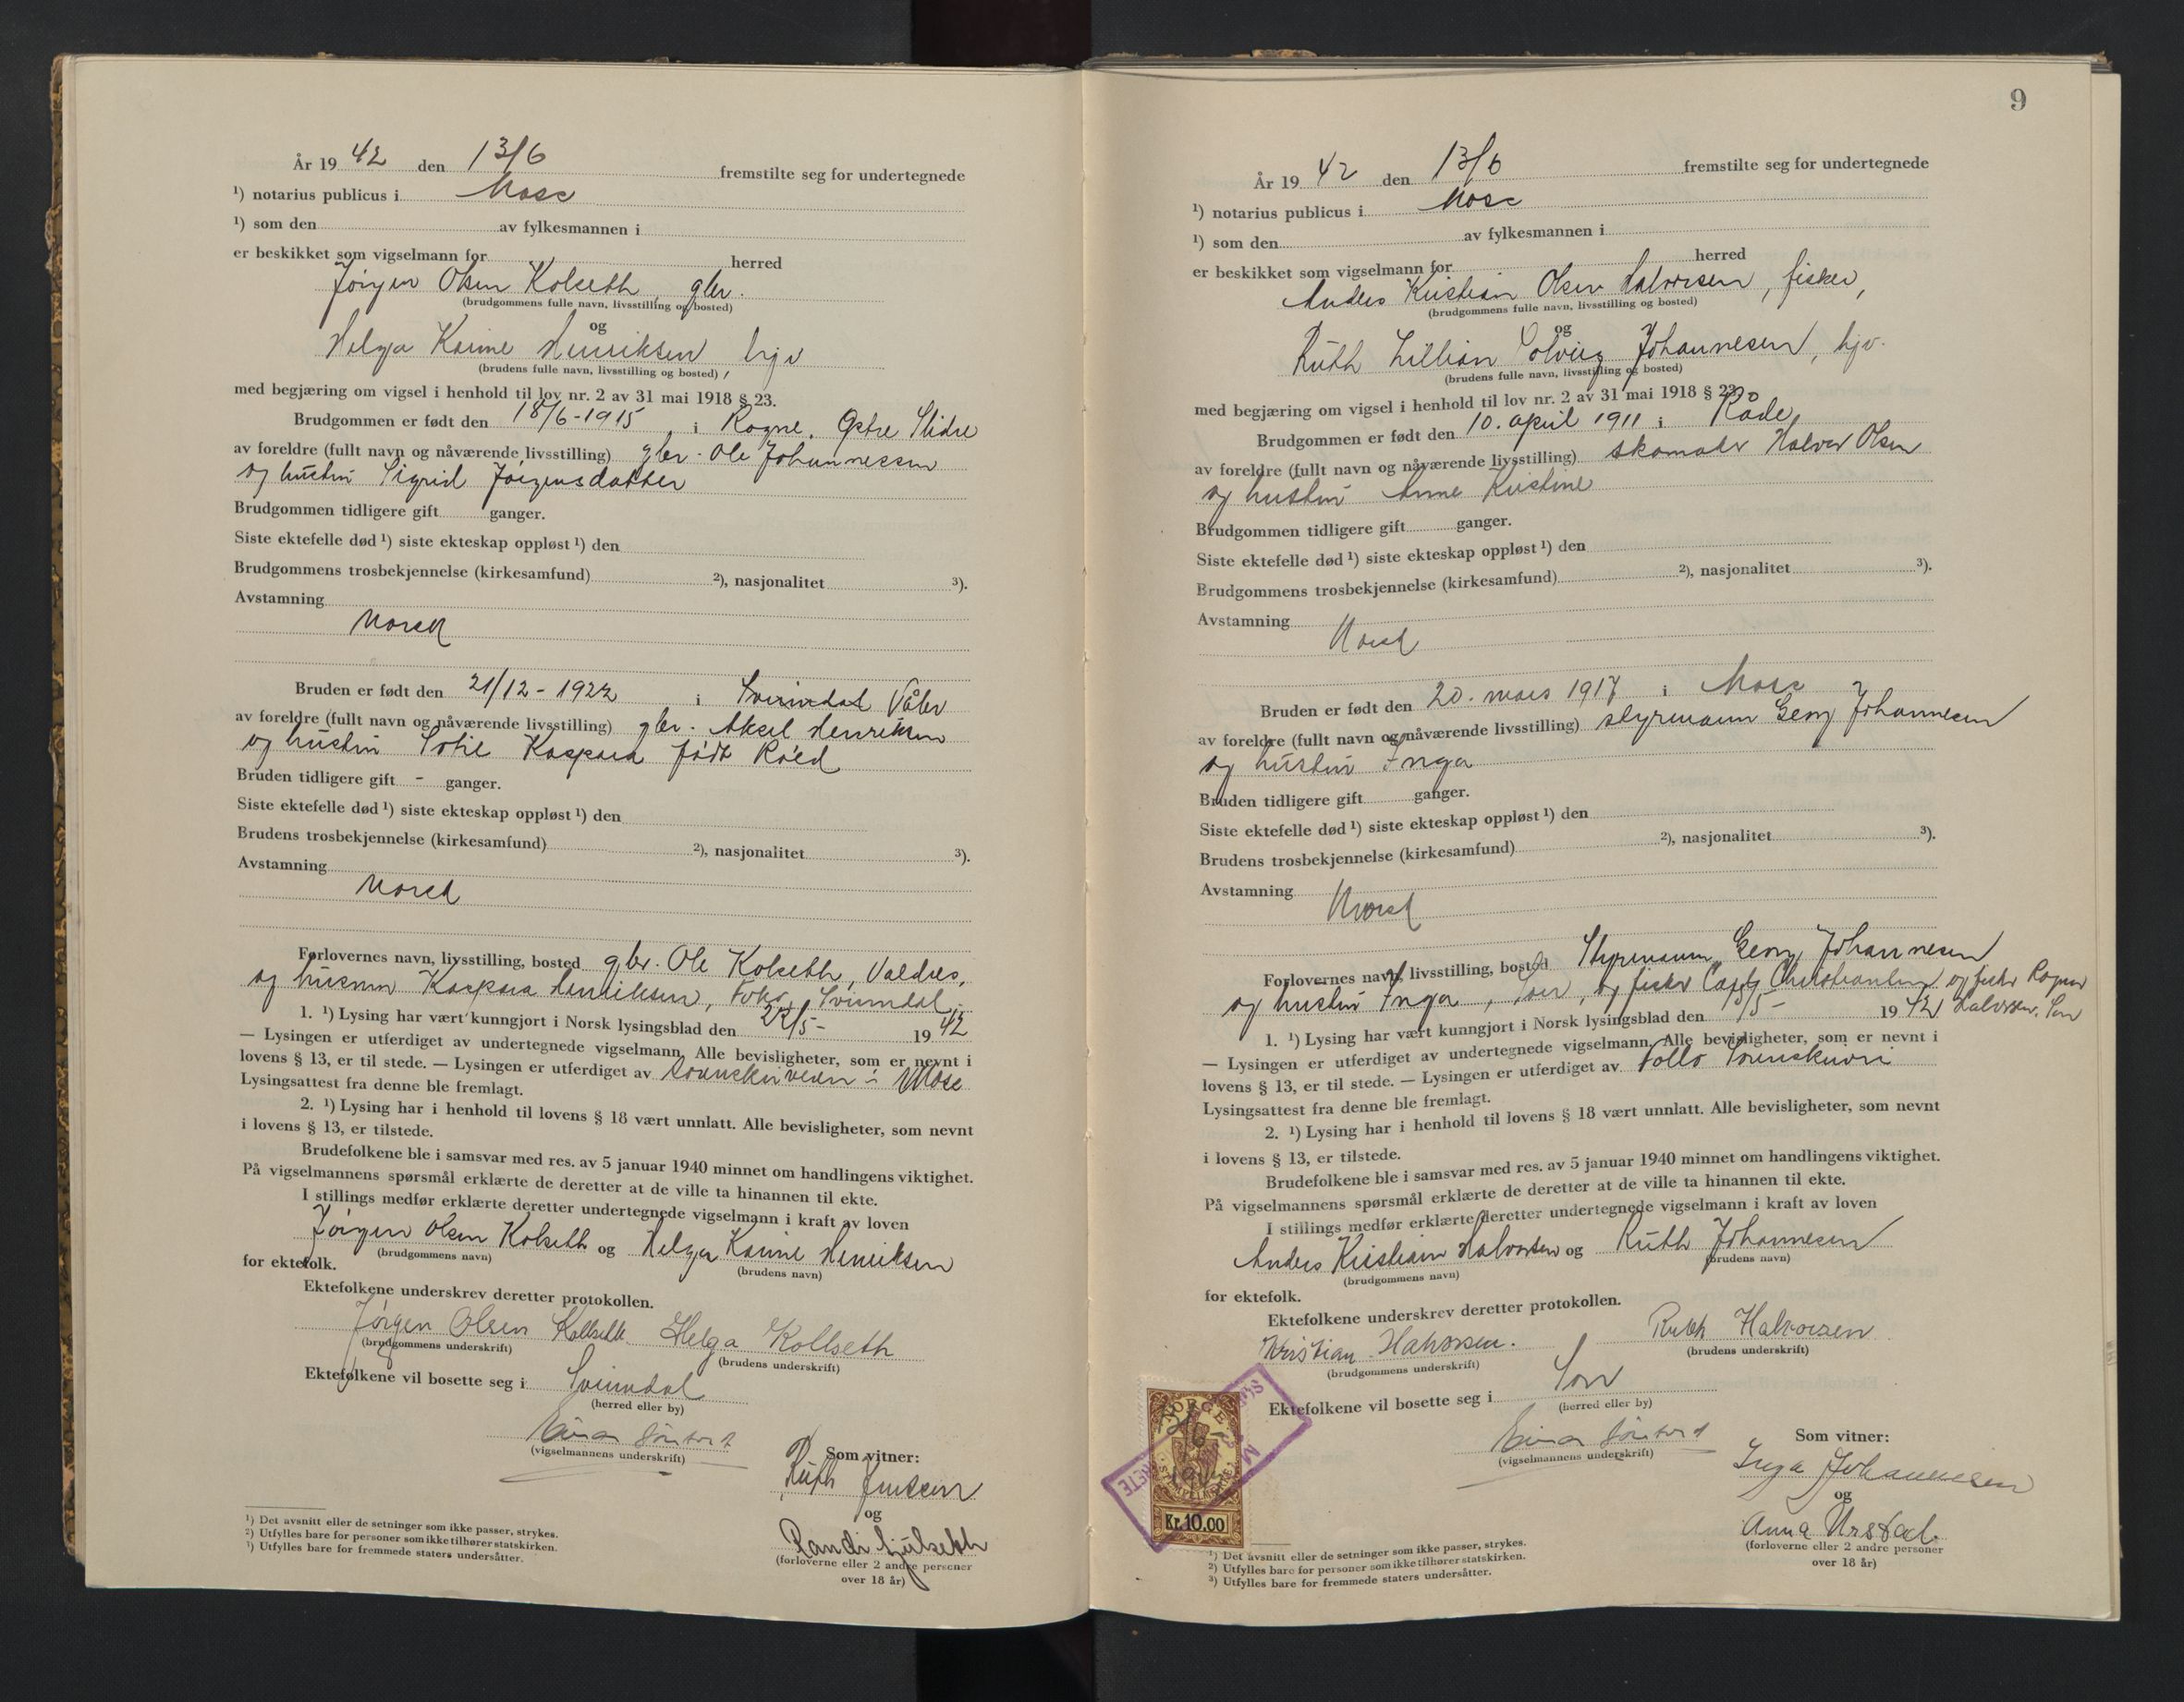 År 19 42 den 13/6 fremstilte seg for undertegnede
¹) notarius publicus i Moss
¹) som den av fylkesmannen i
er beskikket som vigselmann for herred
Jörgen Olsen Kolseth, gbr.
(brudgommens fulle navn, livsstilling og bosted)
og
Helga Karine Henriksen hjv
(brudens fulle navn, livsstilling og bosted)
med begjæring om vigsel i henhold til lov nr. 2 av 31 mai 1918 § 23.
Brudgommen er født den 18/6-1915 i Rogne, Østre Slidre
av foreldre (fullt navn og nåværende livsstilling) gbr. Ole Johannessen
og hustru Sigrid Jörgensdatter
Brudgommen tidligere gift ganger.
Siste ektefelle død ¹) siste ekteskap oppløst ¹) den
Brudgommens trosbekjennelse (kirkesamfund) ²), nasjonalitet ³).
Avstamning
Norsk
Bruden er født den 21/12 - 1922 i Svinndal Våler
av foreldre (fullt navn og nåværende livsstilling) gbr. Aksel Henriksen
og hustru Sofie Kaspara født Röed
Bruden tidligere gift - ganger.
Siste ektefelle død ¹) siste ekteskap oppløst ¹) den
Brudens trosbekjennelse (kirkesamfund) ²), nasjonalitet ³).
Avstamning
Norsk
Forlovernes navn, livsstilling, bosted gbr. Ole Kolseth, Valdres,
og Kaspara Henriksen, Svinndal
1. ¹) Lysing har vært kunngjort i Norsk lysingsblad den 22/5- 19 42
— Lysingen er utferdiget av undertegnede vigselmann. Alle bevisligheter, som er nevnt i
lovens § 13, er til stede. — Lysingen er utferdiget av sorenskriveren i Moss
Lysingsattest fra denne ble fremlagt.
2. ¹) Lysing har i henhold til lovens § 18 vært unnlatt. Alle bevisligheter, som nevnt
i lovens § 13, er tilstede.
Brudefolkene ble i samsvar med res. av 5 januar 1940 minnet om handlingens viktighet.
På vigselmannens spørsmål erklærte de deretter at de ville ta hinannen til ekte.
I stillings medfør erklærte deretter undertegnede vigselmann i kraft av loven
Jörgen Olsen Kolseth og Helga Karine Henriksen
(brudgommens navn) (brudens navn)
for ektefolk.
Ektefolkene underskrev deretter protokollen.
Jörgen Olsen Kollseth Helga Kollseth
(brudgommens underskrift) (brudens underskrift)
Ektefolkene vil bosette seg i Svinndal
(herred eller by)
(vigselmannens underskrift)
Som vitner:
Ruth Jensen
og
Randi
(forloverne eller 2 andre personer
over 18 år)
¹) Det avsnitt eller de setninger som ikke passer, strykes.
²) Utfylles bare for personer som ikke tilhører statskirken.
³) Utfylles bare for fremmede staters undersåtter.
9
År 19 42 den 13/6 fremstilte seg for undertegnede
¹) notarius publicus i Moss
¹) som den av fylkesmannen i
er beskikket som vigselmann for herred
Anders Kristian Olsen Halvorsen, fisker,
(brudgommens fulle navn, livsstilling og bosted)
og
Ruth Lillian Solveig Johannesen, hjv.
(brudens fulle navn, livsstilling og bosted)
med begjæring om vigsel i henhold til lov nr. 2 av 31 mai 1918 § 23.
Brudgommen er født den 10. april 1911 i Råde
av foreldre (fullt navn og nåværende livsstilling) skomaker Halvor Olsen
og hustru Anne Kristine
Brudgommen tidligere gift ganger.
Siste ektefelle død ¹) siste ekteskap oppløst ¹) den
Brudgommens trosbekjennelse (kirkesamfund) ²), nasjonalitet ³).
Avstamning
Norsk
Bruden er født den 20. mars 1917 i Moss
av foreldre (fullt navn og nåværende livsstilling) styrmann Georg Johannesen
og hustru Inga
Bruden tidligere gift ganger.
Siste ektefelle død ¹) siste ekteskap oppløst ¹) den
Brudens trosbekjennelse (kirkesamfund) ²), nasjonalitet ³).
Avstamning
Norsk
Forlovernes navn, livsstilling, bosted Styrmann Georg Johannesen
og hustru Inga, Son, og fisker Christiansen og fisker Ragnar
Halvorsen, Son
1. ¹) Lysing har vært kunngjort i Norsk lysingsblad den /5- 19 42
— Lysingen er utferdiget av undertegnede vigselmann. Alle bevisligheter, som er nevnt i
lovens § 13, er til stede. — Lysingen er utferdiget av Follo Sorenskriveri
Lysingsattest fra denne ble fremlagt.
2. ¹) Lysing har i henhold til lovens § 18 vært unnlatt. Alle bevisligheter, som nevnt
i lovens § 13, er tilstede.
Brudefolkene ble i samsvar med res. av 5 januar 1940 minnet om handlingens viktighet.
På vigselmannens spørsmål erklærte de deretter at de ville ta hinannen til ekte.
I stillings medfør erklærte deretter undertegnede vigselmann i kraft av loven
Anders Kristian Halvorsen og Ruth Johannesen
(brudgommens navn) (brudens navn)
for ektefolk.
Ektefolkene underskrev deretter protokollen.
Kristian Halvorsen. Ruth Halvorsen
(brudgommens underskrift) (brudens underskrift)
Ektefolkene vil bosette seg i Son
(herred eller by)
(vigselmannens underskrift)
Som vitner:
Inga Johannessen
og
Anna Urstad.
(forloverne eller 2 andre personer
over 18 år)
NORGE
STEMPELMERKE
Kr. 10.00
¹) Det avsnitt eller de setninger som ikke passer, strykes.
²) Utfylles bare for personer som ikke tilhører statskirken.
³) Utfylles bare for fremmede staters undersåtter.